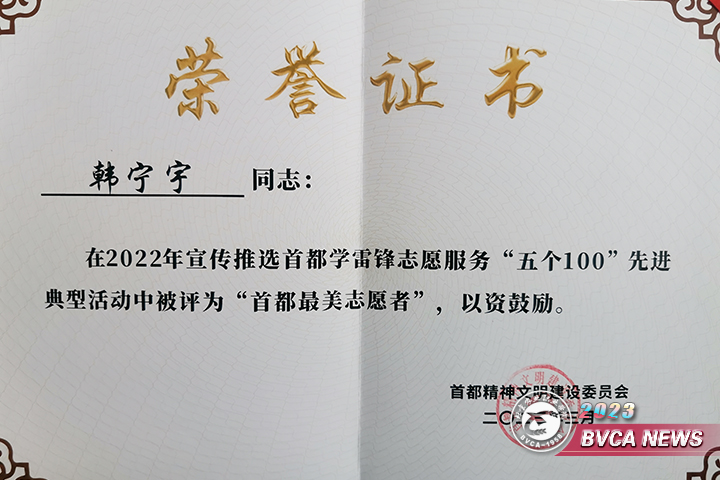 荣誉证书
韩宁宇 同志：
在2022年宣传推选首都学雷锋志愿服务“五个100”先进
典型活动中被评为“首都最美志愿者”，以资鼓励。
首都精神文明建设委员会
二〇 三月
2023
BVCA-1958
BVCA NEWS